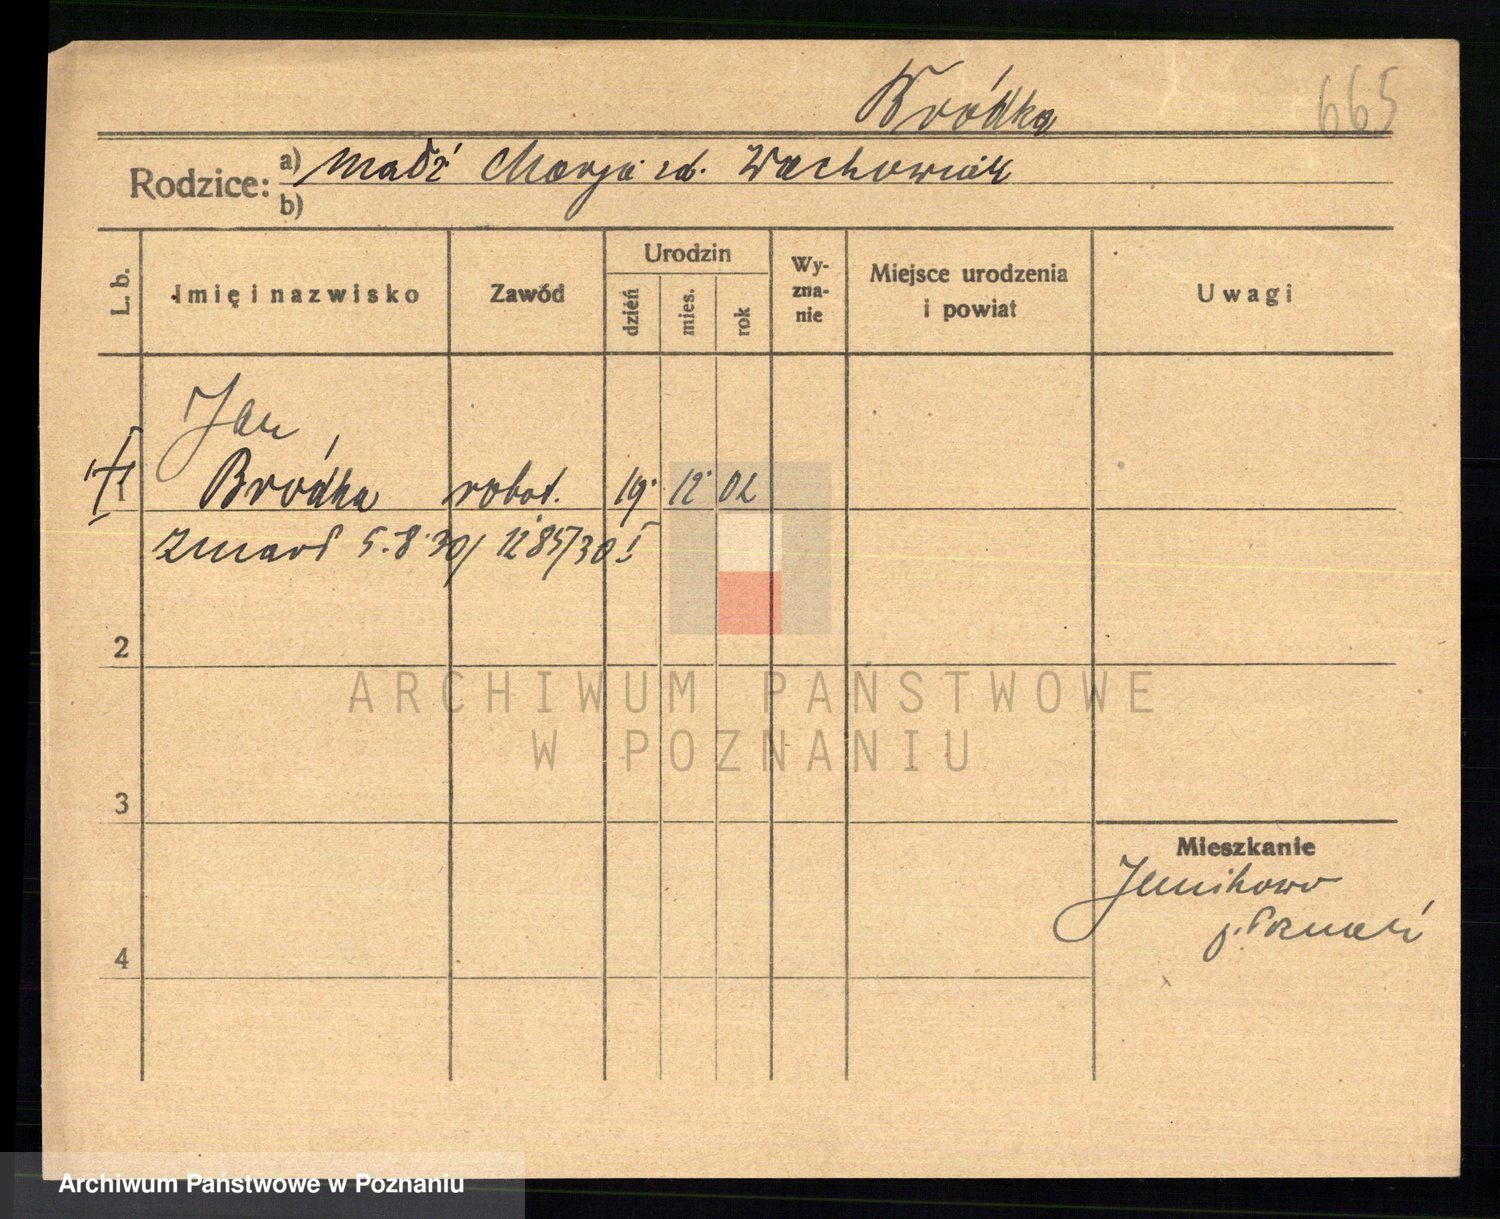 Bródka
665
Rodzice: a) małż Marja zd. Wachowiak
b)
L. b.
Imię i nazwisko
Zawód
Urodzin
dzień
mies.
rok
Wy-
zna-
nie
Miejsce urodzenia
i powiat
Uwagi
Jan
1 Bródka robot. 19. 12. 02
zmarł 5.8.30/ 1285/30 I
2
ARCHIWUM PAŃSTWOWE
W POZNANIU
3
Mieszkanie
Junikowo
p. Poznań
4
Archiwum Państwowe w Poznaniu